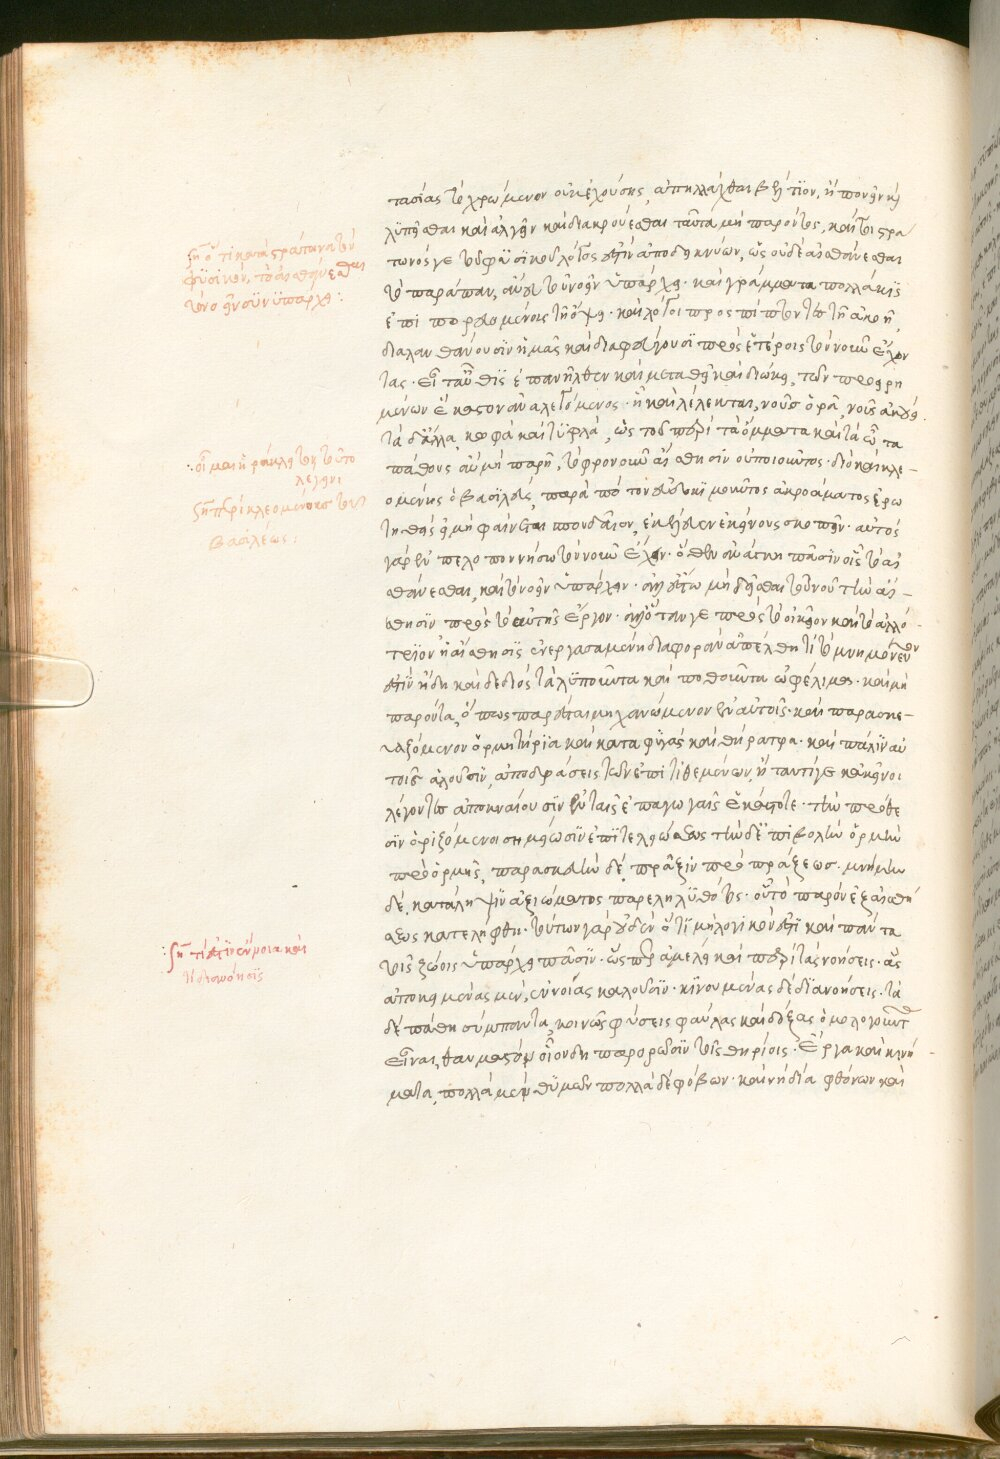 τασίας τὸ χρώμενον οὐκ ἐχούσης, ἀπηλλάχθαι βέλτϊον, ἢ πονεῖν κὴ
λϋπῆσθαι καὶ ἀλγεῖν καὶ διακρούεσθαι ταῦτα μὴ παρόντος, καίτοι στρά
τωνός γε τοῦ φϋσϊκοῦ λόγος ἐστὶν ἀποδεικνύων, ὡς οὐδὲ αἰσθάνεσθαι
τὸ παράπαν, ἄνευ τοῦ νοεῖν ὑπάρχει· καὶ γράμματα πολλάκϊς
ἐπι πορευομένοις τῇ ὄψει· καὶ λόγοι προσπίπτοντες τῇ ἀκοῇ,
διαλανθάνουσϊν ἡμᾶς καὶ διαφεύγουσϊ πρὸς ἑτέροις τὸν νοῦν ἔχον
τας· εἶτ' αὖθϊς ἐπανῆλθεν καὶ μεταθεῖ καὶ διώκει, τῶν προειρη
μένων ἕκαστον ἀναλεγόμενος· ᾗ καὶ λέλεκται, νοῦς ὁρᾷ, νοῦς ἀκούει.
τὰ δ' ἄλλα, κωφὰ καὶ τϋφλά, ὡς τοῦ περὶ τὰ ὄμματα καὶ τὰ ὦτα
πάθους ἂν μὴ παρῇ, τὸ φρονοῦν αἴσθησϊν οὐ ποιοῦντος· διὸ καὶ κλε-
ομένης ὁ βασϊλεὺς, παρὰ πότον εὐδοκϊμοῦντος ἀκροάματος ἐρω
τηθεὶς εἰ μὴ φαίνεται σπουδαῖον, ἐκέλευεν ἐκείνους σκοπεῖν· αὐτὸς
γὰρ ἐν πελοποννήσω τὸν νοῦν ἔχειν· ὅθεν ἀνάγκη πᾶσϊν οἷς τὸ αἰσ
θάνεσθαι, καὶ τὸ νοεῖν ὑπάρχειν· ἀλλ' ἔστω μὴ δεῖσθαι τοῦ νοῦ τὴν αἴσ-
θησϊν πρὸς τὸ αὑτῆς ἔργον· ἀλλ' ὅταν γε πρὸς τὸ οἰκεῖον καὶ τὸ ἀλλό
τρϊον ἡ αἴσθησϊς ἐνεργασαμένη διαφορὰν ἀπέλθῃ τί τὸ μνημονεῦον
ἐστὶν ἤδη καὶ δεδιὸς τὰ λϋποῦντα καὶ ποθοῦντα ὠφέλιμα· καὶ μὴ
παρόντα, ὅπως παρέσται μηχανώμενον ἐν αὐτοῖς· καὶ παρασκε-
υαζόμενον ὁρμητήρϊα καὶ καταφϋγὰς καὶ θήρατρα· καὶ πάλϊν αὐ
τοῖς ἁλοῦσϊν, ἀποδράσεις τῶν ἐπϊτϊθεμένων, ἢ ταυτί γε κἀκεῖνοι
λέγοντες ἀποκναίουσϊν ἐν ταῖς ἐπαγωγαῖς ἑκάστοτε· τὴν πρόθε
σϊν ὁρϊζόμενοι σημείωσϊν ἐπϊτελειώσεως τὴν δ' ἐπϊβολὴν ὁρμὴν
πρὸ ὁρμῆς, παρασκευὴν δὲ, πρᾶξϊν πρὸ πράξεως· μνήμην
δὲ, κατάληψϊν ἀξιώματος παρεληλϋθότος· οὗ τὸ παρὸν ἐξ αἰσθή
σεως κατελήφθη· τούτων γὰρ οὐδὲν ὅ τϊ μὴ λογϊκόν ἐστϊ καὶ πάντα
τοῖς ζώοις ὑπάρχει πᾶσϊν· ὥσπερ ἀμέλει καὶ περὶ τὰς νοήσεις· ἃς
ἀποκειμένας μὲν, ἐννοίας καλοῦσϊν· κϊνουμένας δὲ δϊανοήσεις· τὰ
δὲ πάθη σύμπαντα, κοινῶς φύσεις φαύλας καὶ δόξας ὁμολογοῦντ
εἶναι, θαυμαστὸν οἷον δὴ παρορῶσϊν τοῖς θηρίοις· ἔργα καὶ κινή
ματα, πολλὰ μὲν θϋμῶν πολλὰ δὲ φόβων· καὶ νὴ δία φθόνων καὶ
ση ὅτι κατὰ στράτωνα τὸν
φϋσϊκὸν, τὸ αἰσθάνεσθαι
τὸ νοεῖν σϋνϋπάρχει:
οἶμαι ἡράκλητον τοῦτο
λέγειν
ση περὶ κλεομένους τοῦ
βασιλέως:
ση τί ἐστϊν ἔννοια καὶ
τί διανόησϊς